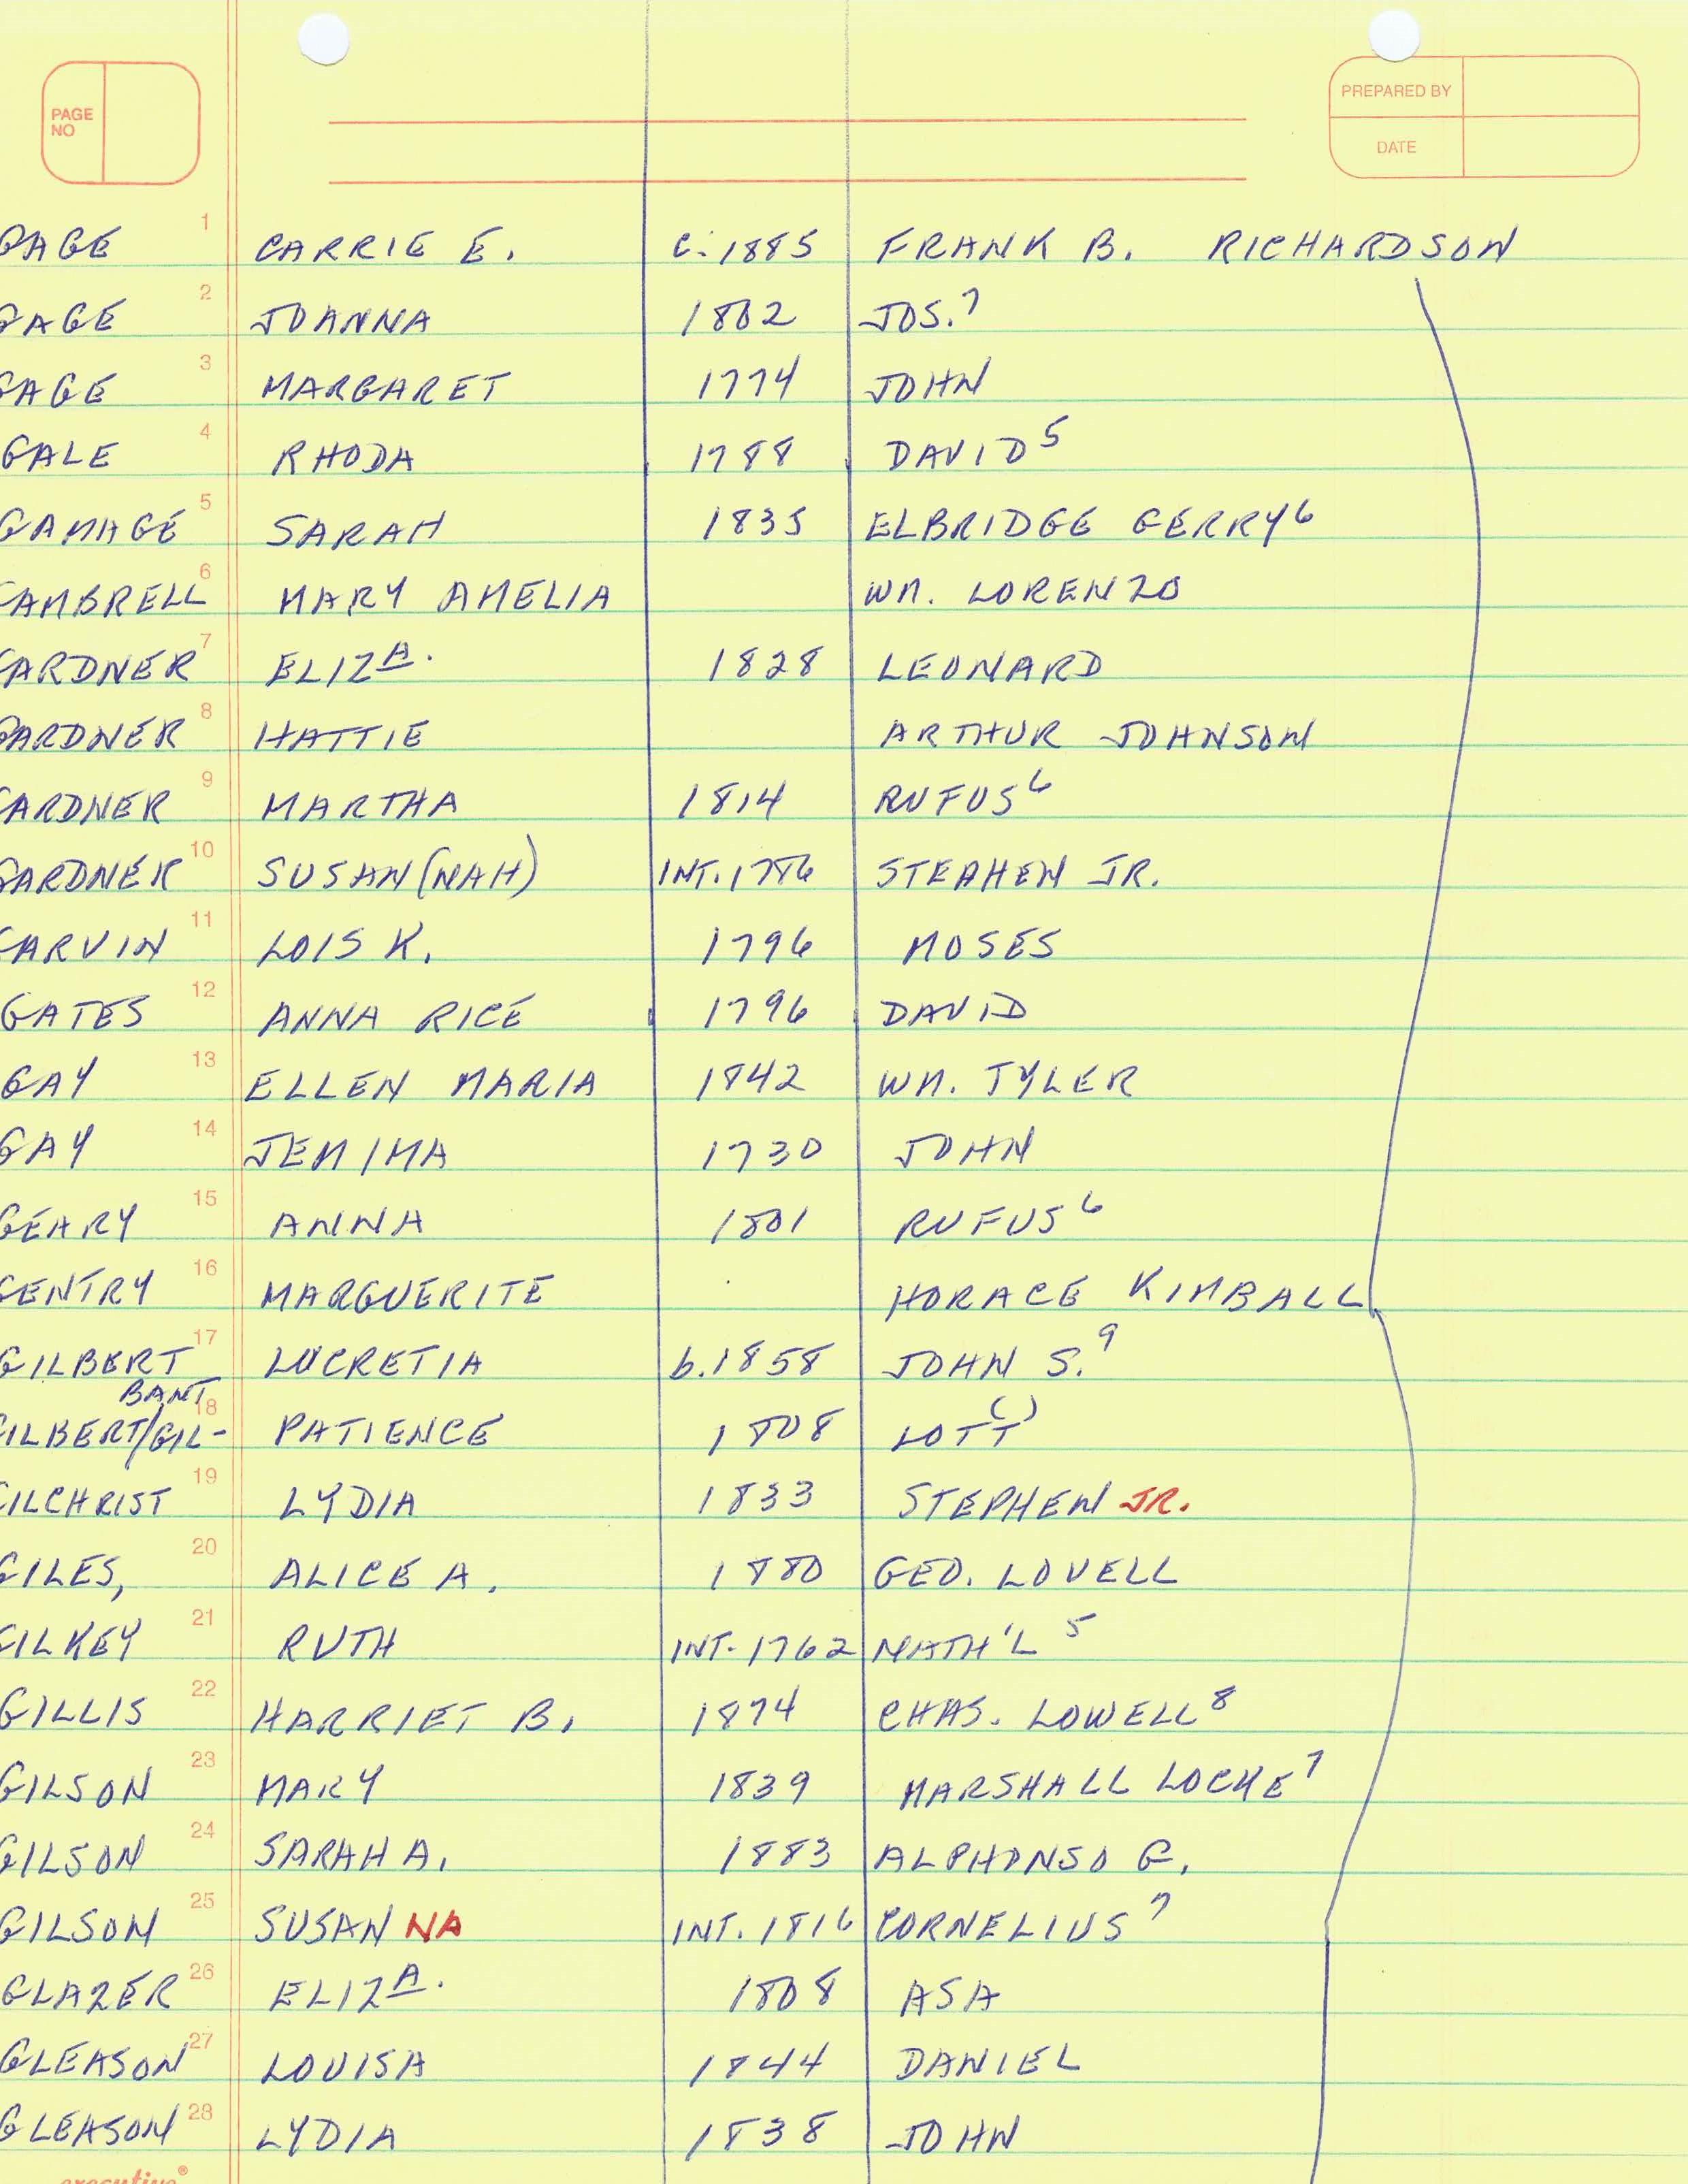 PAGE NO
PREPARED BY
DATE
1 GAGE CARRIE E. c. 1885 FRANK B. RICHARDSON
2 GAGE JOANNA 1802 JOS.7
3 GAGE MARGARET 1774 JOHN
4 GALE RHODA 1788 DAVID5
5 GAMAGE SARAH 1835 ELBRIDGE GERRY6
6 GAMBRELL MARY AMELIA WM. LORENZO
7 GARDNER ELIZA. 1828 LEONARD
8 GARDNER HATTIE ARTHUR JOHNSON
9 GARDNER MARTHA 1814 RUFUS6
10 GARDNER SUSAN(NAH) INT. 1786 STEPHEN JR.
11 GARVIN LOIS K. 1796 MOSES
12 GATES ANNA RICE 1796 DAVID
13 GAY ELLEN MARIA 1842 WM. TYLER
14 GAY JEMIMA 1730 JOHN
15 GEARY ANNA 1801 RUFUS6
16 GENTRY MARGUERITE HORACE KIMBALL
17 GILBERT LUCRETIA b. 1858 JOHN S.9
BANT
18 GILBERT/GIL- PATIENCE 1808 LOTT( )
19 GILCHRIST LYDIA 1833 STEPHEN JR.
20 GILES, ALICE A. 1880 GEO. LOVELL
21 GILKEY RUTH INT. 1762 NATH'L 5
22 GILLIS HARRIET B. 1874 CHAS. LOWELL8
23 GILSON MARY 1839 MARSHALL LOCKE7
24 GILSON SARAH A. 1883 ALPHONSO G.
25 GILSON SUSAN NA INT. 1816 CORNELIUS7
26 GLAZER ELIZA. 1808 ASA
27 GLEASON LOUISA 1844 DANIEL
28 GLEASON LYDIA 1838 JOHN
executive®